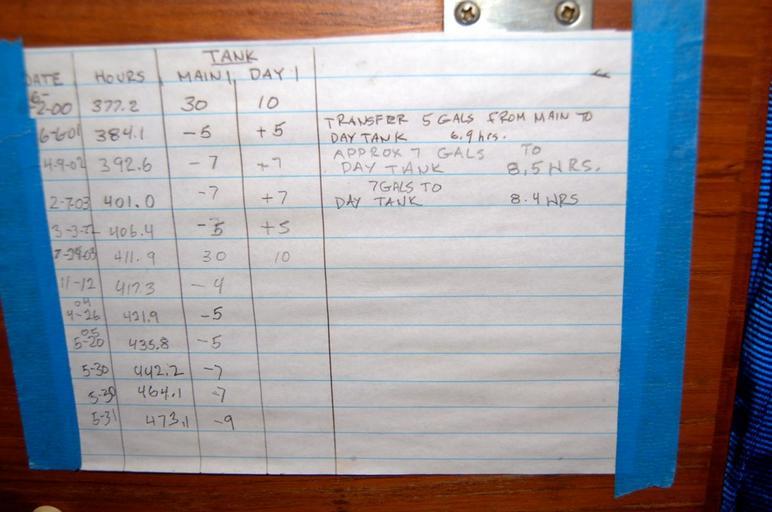 TANK
DATE HOURS MAIN DAY
6-2-00 377.2 30 10
6-6-01 384.1 -5 +5 TRANSFER 5 GALS FROM MAIN TO
DAY TANK 6.9 hrs.
4-9-02 392.6 -7 +7 APPROX 7 GALS TO
DAY TANK 8.5 HRS.
2-7-03 401.0 -7 +7 7 GALS TO
DAY TANK 8.4 HRS
3-3- 406.4 -5 +5
411.9 30 10
11-12 417.3 -4
04
4-26 421.9 -5
05
5-20 435.8 -5
5-30 442.2 -7
464.1 -7
5-31 473.1 -9